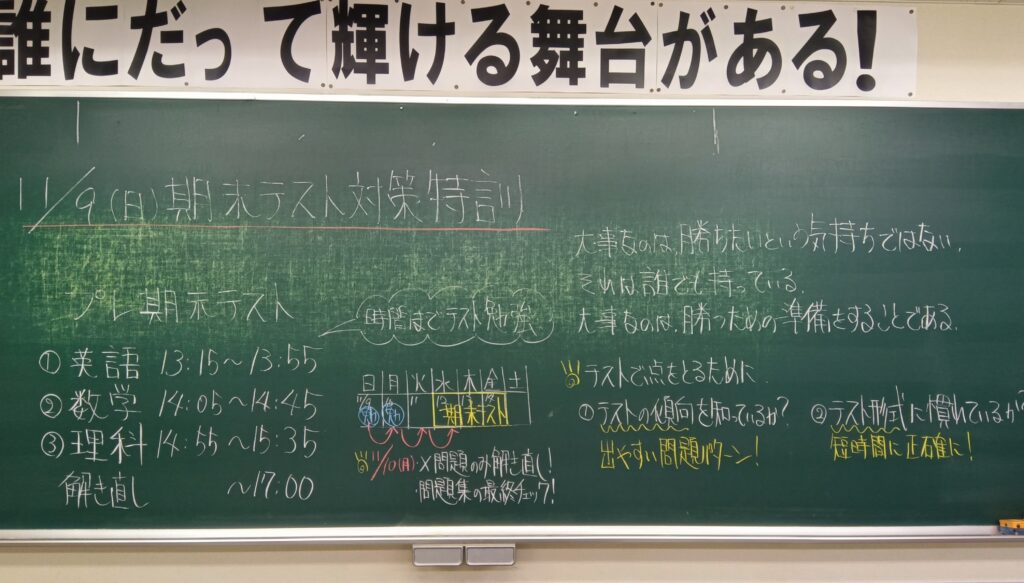 誰にだって輝ける舞台がある!
11/9(日)期末テスト対策特訓
プレ期末テスト
①英語 13:15～13:55
②数学 14:05～14:45
③理科 14:55～15:35
解き直し ～17:00
時間までテスト勉強
日 月 火 水 木 金 土
期末テスト
11/10(月):×問題のみ解き直し!
・問題集の最終チェック!
大事なのは、勝ちたいという気持ちではない、
それは誰でも持っている。
大事なのは、勝つための準備をすることである。
テストで点をとるために
①テストの傾向を知っているか?
出やすい問題パターン!
②テスト形式に慣れているか?
短時間に正確に!